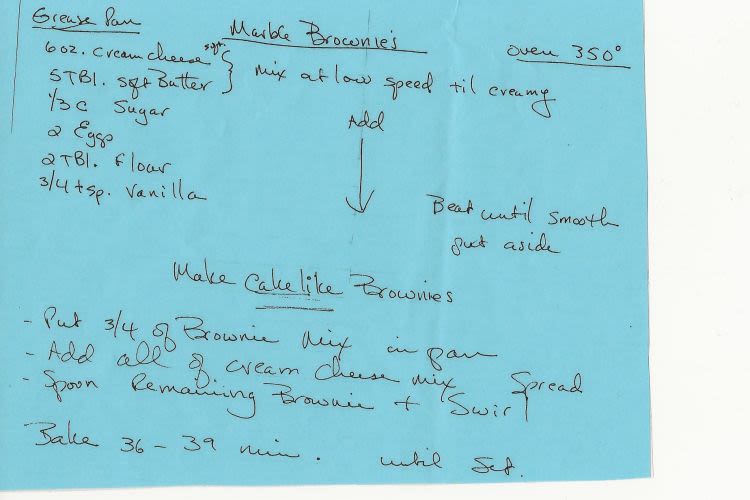 Grease Pan
Marble Brownie's
oven 350°
6 oz. Cream cheese sft.
5 TBl. sft Butter
mix at low speed til creamy
1/3 c Sugar
Add
2 Eggs
2 TBl. flour
3/4 tsp. Vanilla
Beat until smooth
put aside
Make Cakelike Brownies
- Put 3/4 of Brownie Mix in pan
- Add all of cream Cheese mix Spread
- Spoon Remaining Brownie + Swirl
Bake 36 - 39 min. until Set.